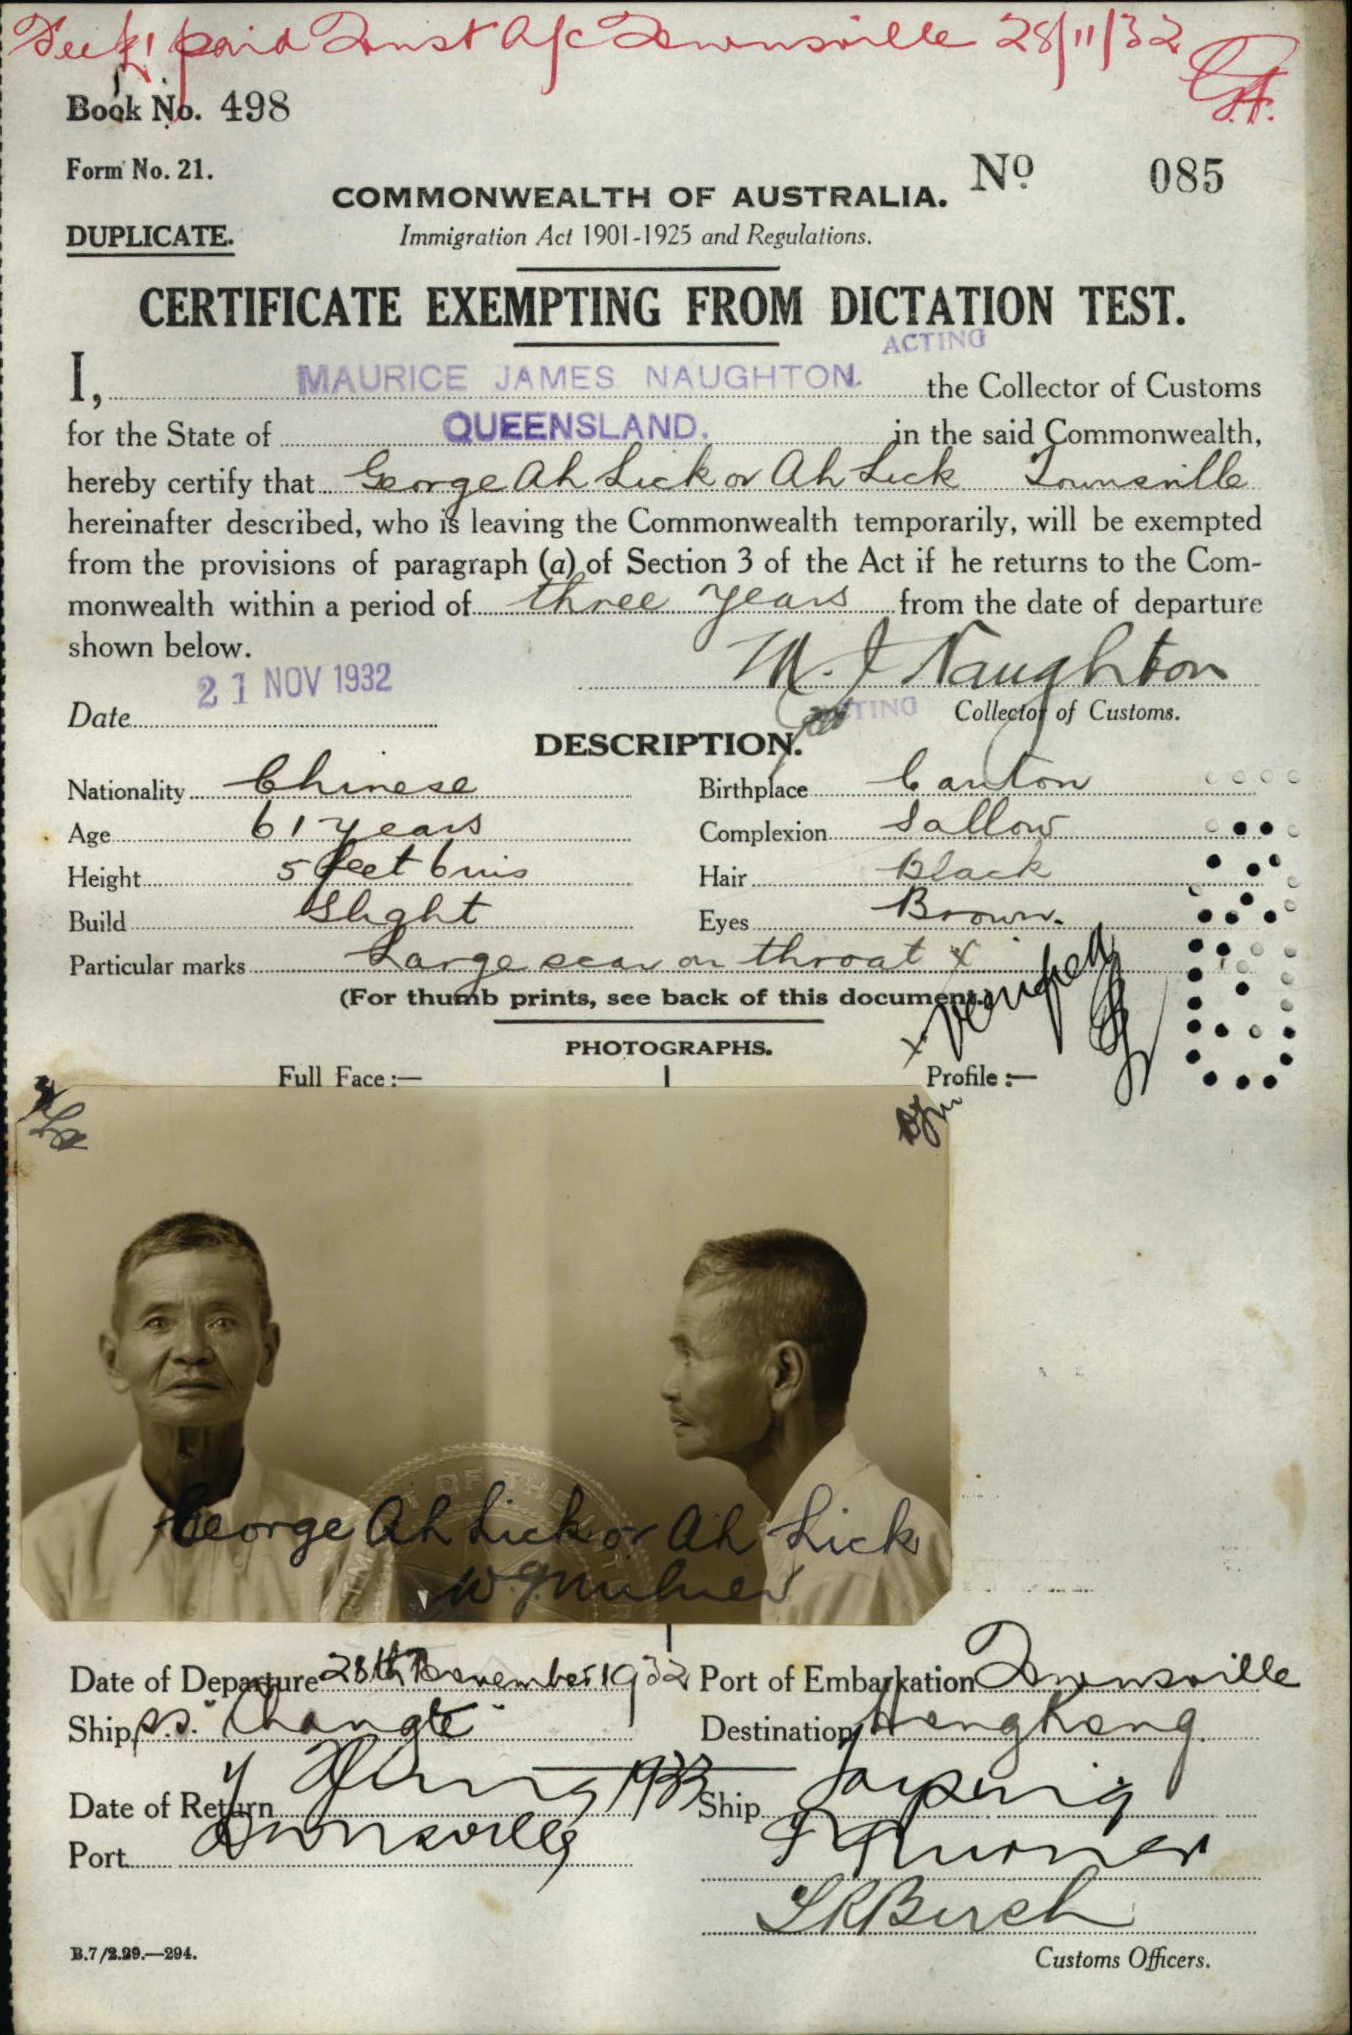 Fee £1 paid Trust A/c Townsville 28/11/32
Book No. 498
Form No. 21.
No 085
COMMONWEALTH OF AUSTRALIA.
DUPLICATE.
Immigration Act 1901-1925 and Regulations.
CERTIFICATE EXEMPTING FROM DICTATION TEST.
ACTING
I, MAURICE JAMES NAUGHTON. the Collector of Customs
for the State of QUEENSLAND. in the said Commonwealth,
hereby certify that George Ah Lick or Ah Lick Townsville
hereinafter described, who is leaving the Commonwealth temporarily, will be exempted
from the provisions of paragraph (a) of Section 3 of the Act if he returns to the Com-
monwealth within a period of three years from the date of departure
shown below.
M. J Naughton
21 NOV 1932
Date
ACTING Collector of Customs.
DESCRIPTION.
Nationality Chinese Birthplace Canton
Age 61 years Complexion Sallow
Height 5 feet 6 ins Hair Black
Build Slight Eyes Brown.
Particular marks Large scar on throat x
(For thumb prints, see back of this document.)
x Verified
PHOTOGRAPHS.
Full Face :— Profile :—
George Ah Lick or Ah Lick
Date of Departure 28th November 1932 Port of Embarkation Townsville
Ship s.s. "Changte" Destination HongKong
Date of Return 1933 Ship Taiping
Port Townsville
Turner
Birch
B.7/2.29.—294.
Customs Officers.